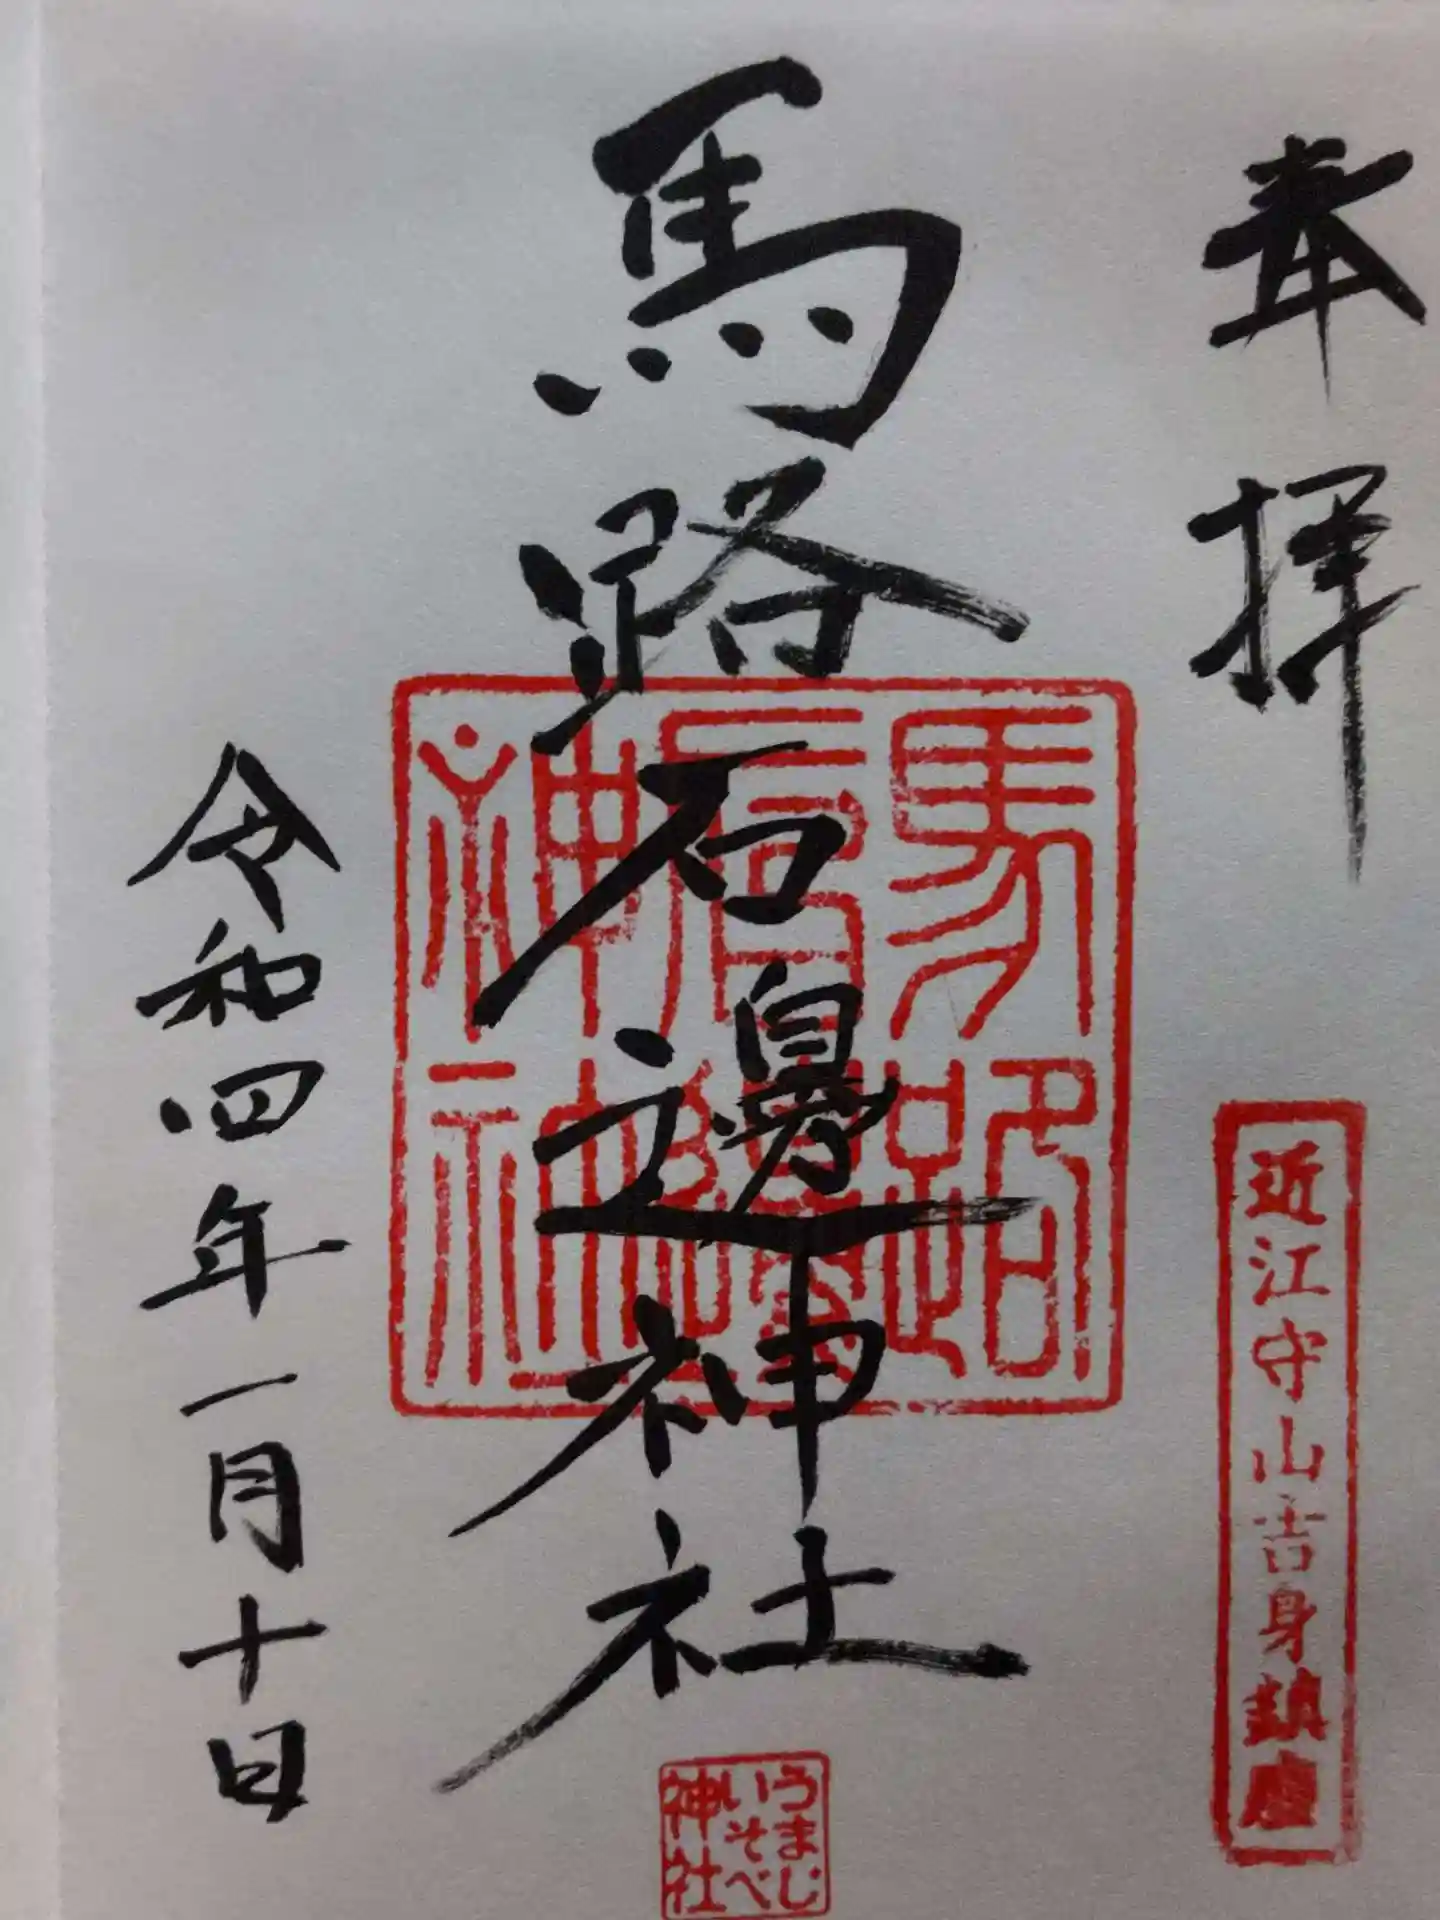 奉拝
近江守山吉身鎮座
馬路石邊神社
馬路
石邊
神社
うまじ
いそべ
神社
令和四年一月十日